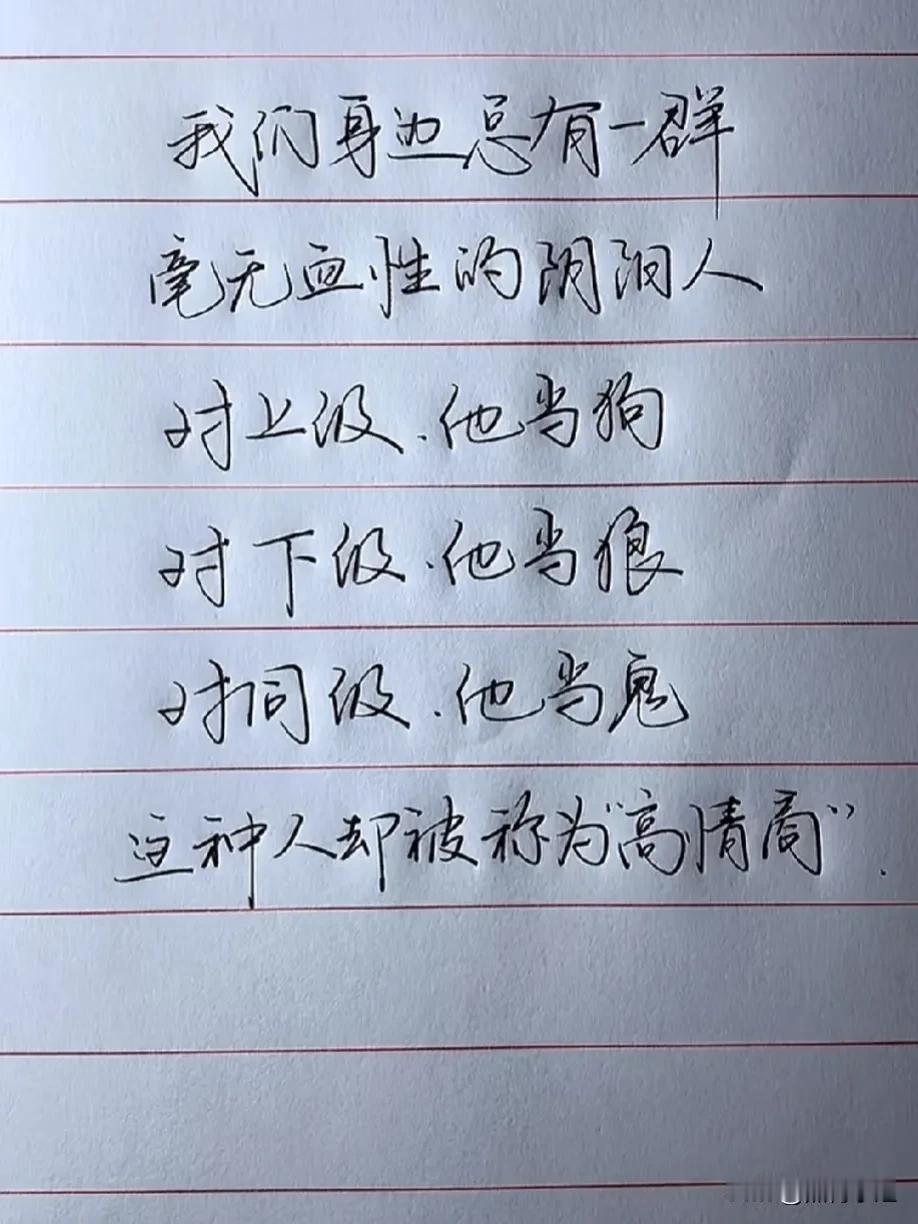 我们身边总有一群
毫无血性的阴阳人
对上级.他当狗
对下级.他当狼
对同级.他当鬼
这种人却被称为“高情商”.